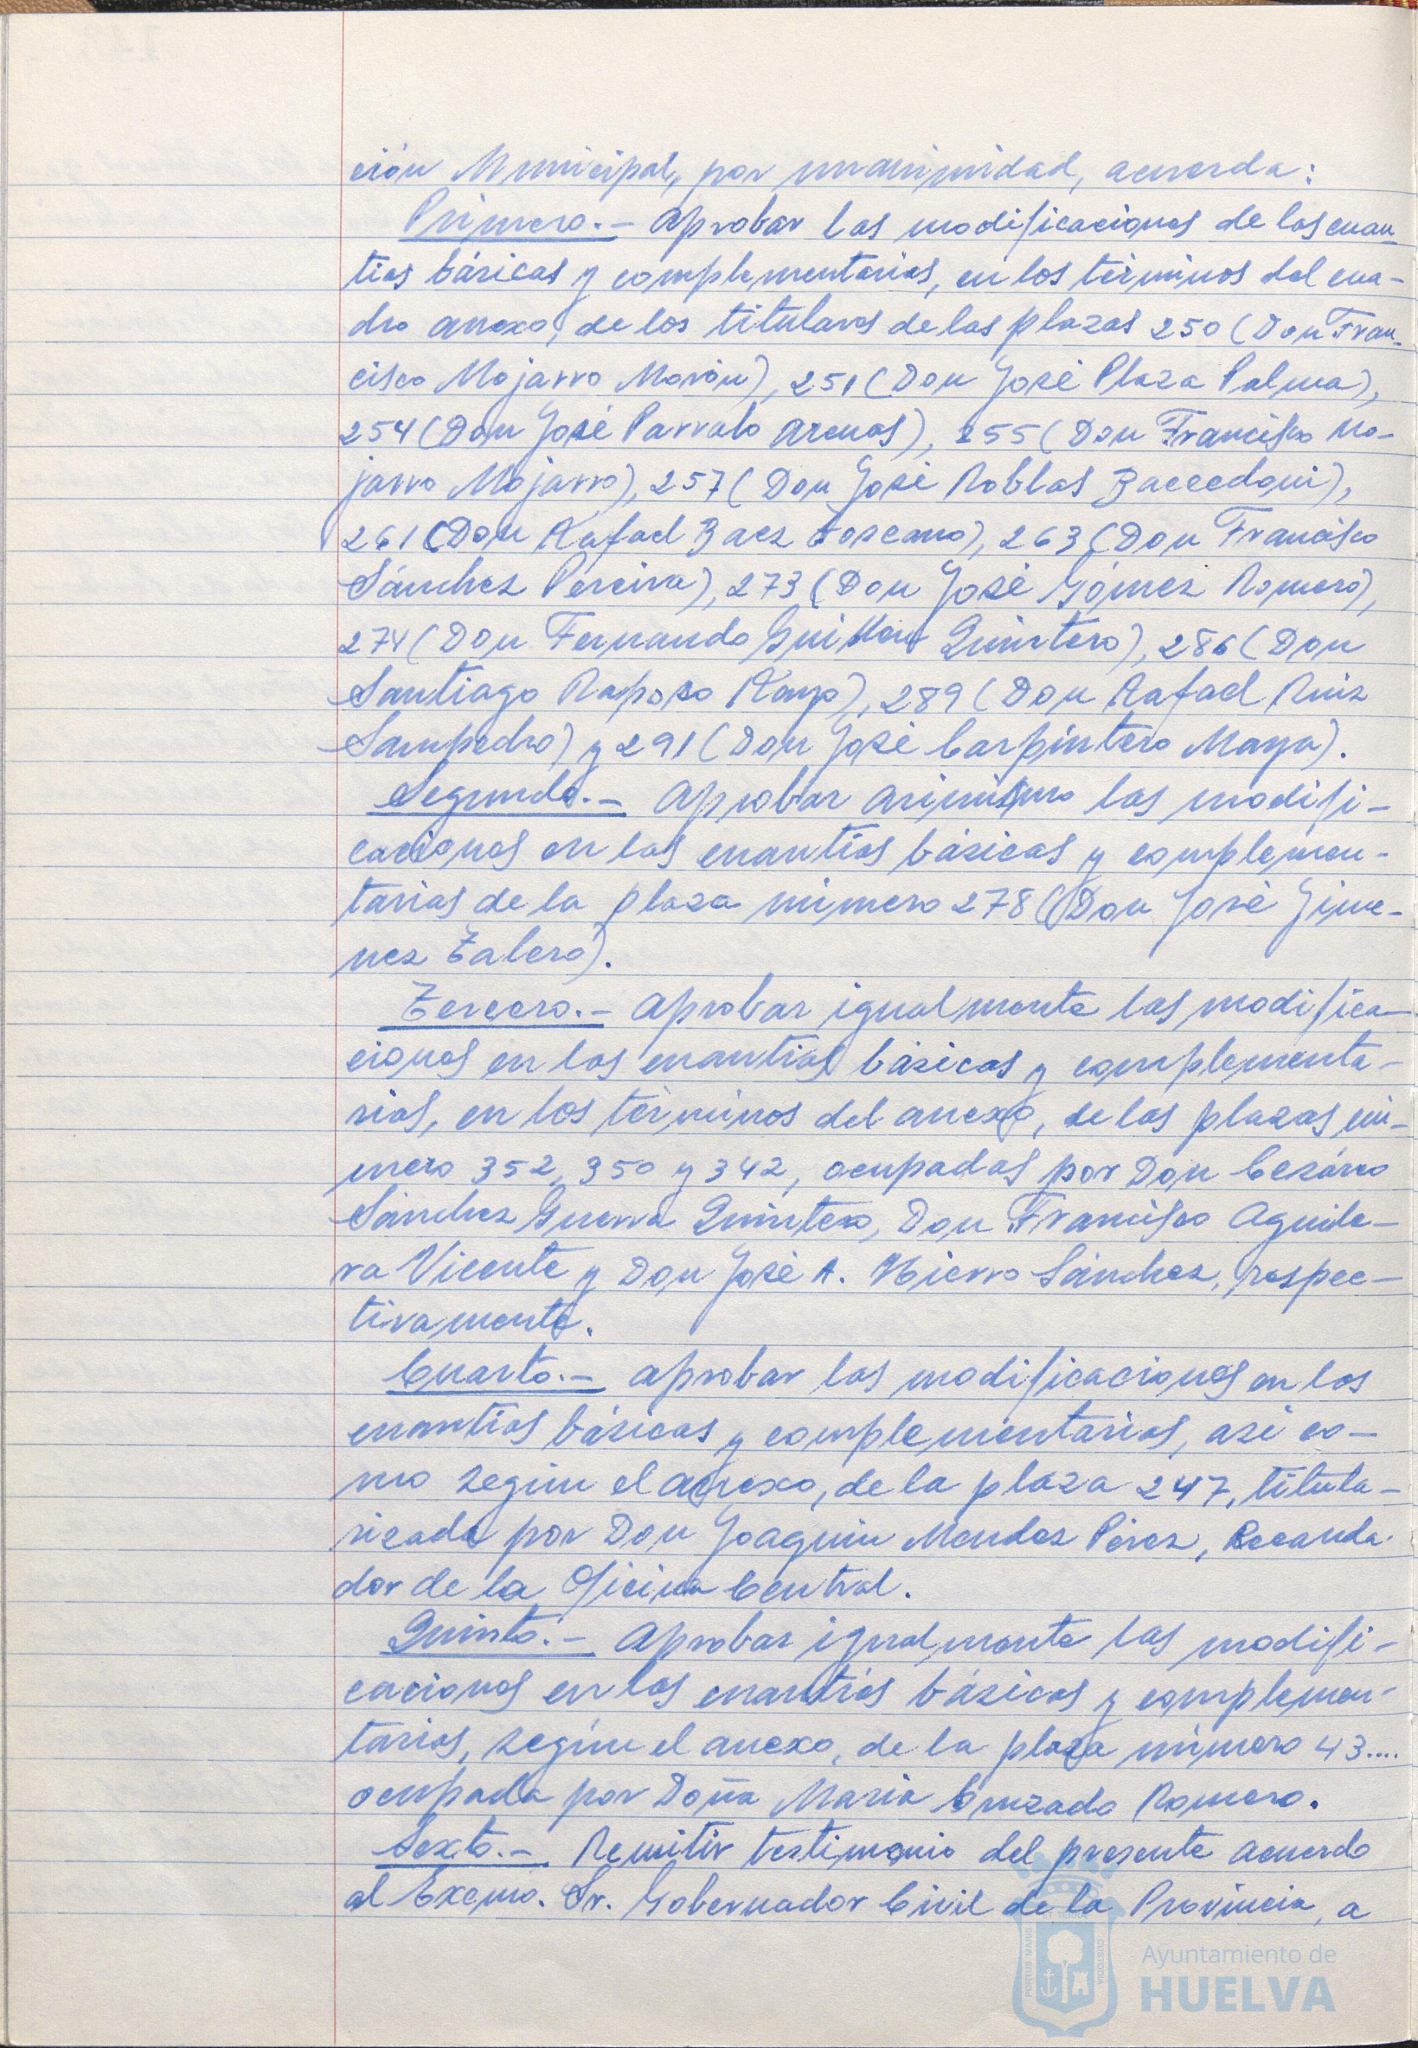 ción Municipal, por unanimidad, acuerda:
Primero.- Aprobar las modificaciones de las cuan-
tías básicas y complementarias, en los términos del cua-
dro anexo, de los titulares de las plazas 250 (Don Fran-
cisco Mojarro Morón), 251 (Don José Plaza Palma),
254 (Don José Parralo Arenas), 255 (Don Francisco Mo-
jarro Mojarro), 257 (Don José Robles Baccedoni),
261 (Don Rafael Baez Toscano), 263 (Don Francisco
Sánchez Pereira), 273 (Don José Gómez Romero),
274 (Don Fernando Guillen Quintero), 286 (Don
Santiago Raposo Rayo), 289 (Don Rafael Ruiz
Sampedro) y 291 (Don José Carpintero Maya).
Segundo.- Aprobar asimismo las modifi-
caciones en las cuantías básicas y complemen-
tarias de la plaza número 278 (Don José Jime-
nez Talero).
Tercero.- Aprobar igualmente las modifica-
ciones en las cuantías básicas y complementa-
rias, en los términos del anexo, de las plazas nú-
mero 352, 350 y 342, ocupadas por Don Cesáreo
Sánchez Guerra Quintero, Don Francisco Aguile-
ra Vicente y Don José A. Hierro Sánchez, respec-
tivamente.
Cuarto.- Aprobar las modificaciones en las
cuantías básicas y complementarias, así co-
mo según el anexo, de la plaza 247, titula-
rizada por Don Joaquín Mendez Pérez, Recauda-
dor de la Oficina Central.
Quinto.- Aprobar igualmente las modifi-
caciones en las cuantías básicas y complemen-
tarias, según el anexo, de la plaza número 43....
ocupada por Doña María Cruzado Romero.
Sexto.- Remitir testimonio del presente acuerdo
al Excmo. Sr. Gobernador Civil de la Provincia, a
Ayuntamiento de
HUELVA